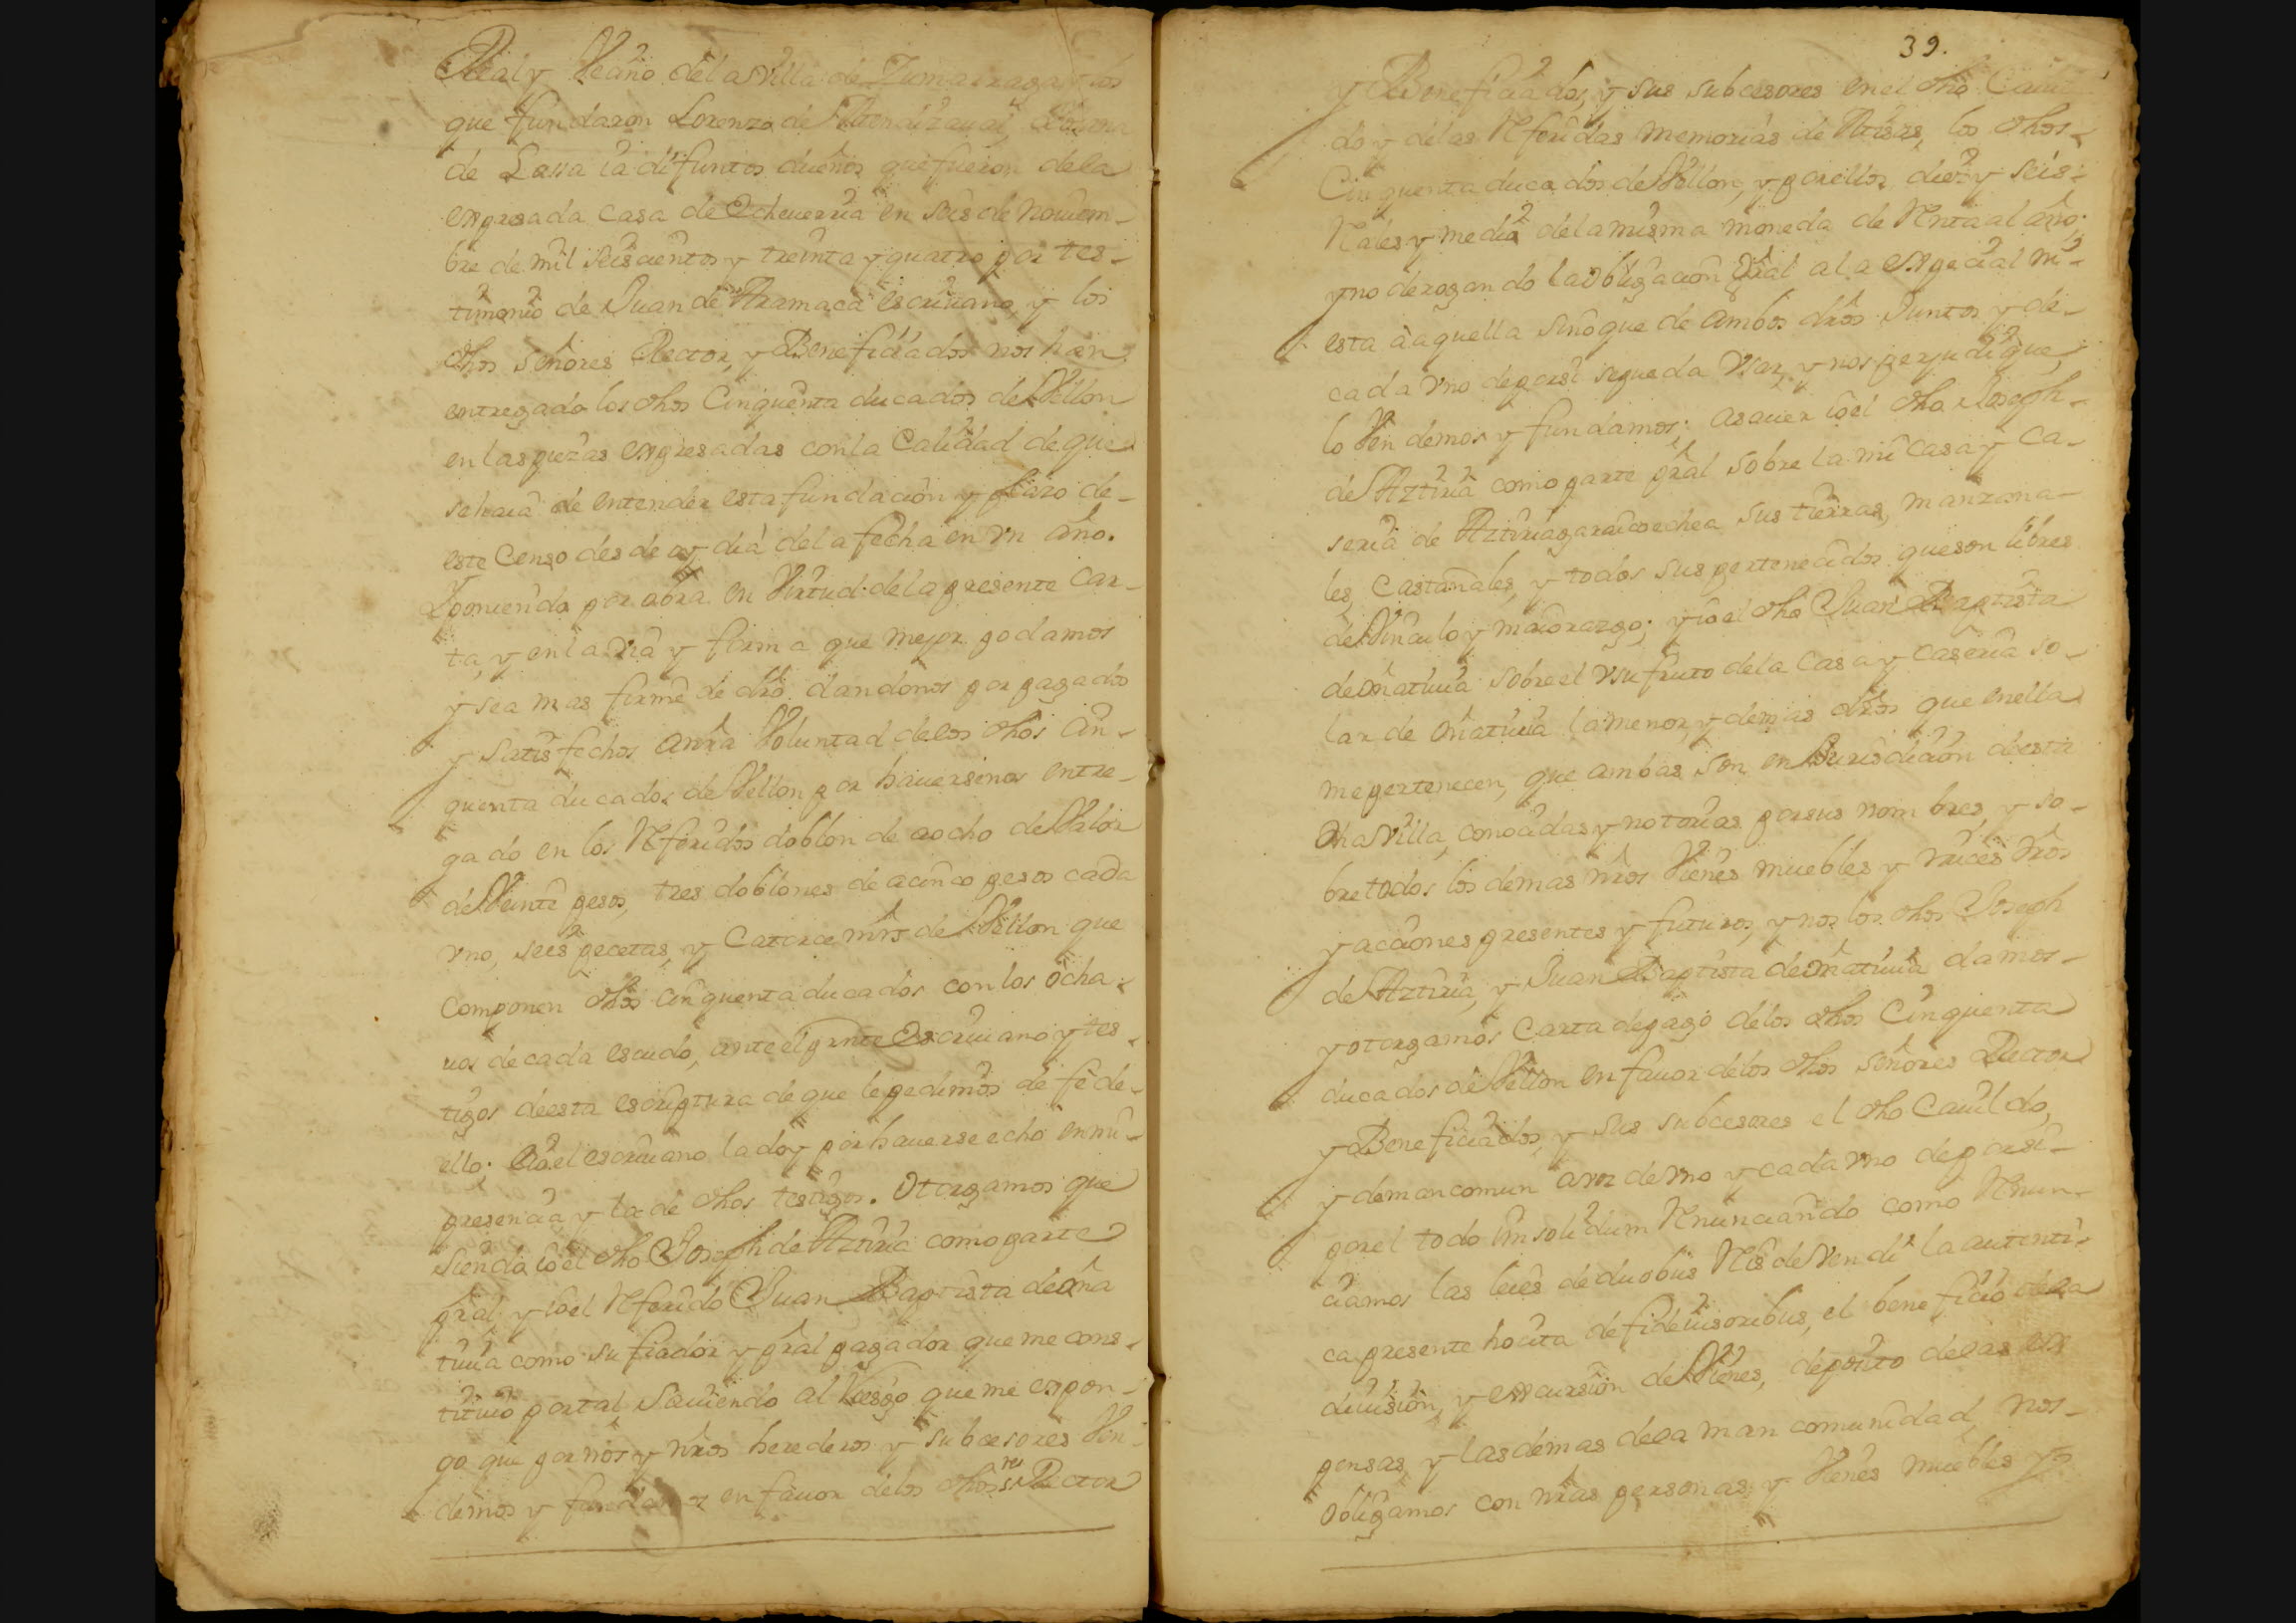 Real y Vecino dela Villa de Zumarraga, y los
que fundaron Lorenzo de Mendizaual,
de Lassa ia difuntos dueños que fueron dela
expresada casa de Echeuerria en seis de Nouiem-
bre de mil seiscientos y treinta y quatro por tes-
timonio de Juan de Aramaca escriuano, y los
dhos señores Rector, y Beneficiados nos han
entregado los dhos Cinquenta ducados de Vellon
en las piezas expresadas con la Calidad de que
se haia de entender esta fundacion y plazo de-
este Censo desde oy dia dela fecha en vn año.
Y poniendo por obra en Virtud dela presente Car-
ta, y en la via y forma que mejor podamos
y sea mas firme de dro dandonos por pagados
y satisfechos anra Voluntad delos dhos Cin-
quenta ducados de Vellon por hauersenos entre-
gado en los Referidos doblon de aocho de Valor
de Veinte pesos, tres doblones de acinco pesos cada
vno, seis pecetas, y Catorce mrs de Vellon que
componen dhos cinquenta ducados con los ocha-
uos de cada escudo, ante el prnte Escriuano y tes-
tigos deesta escriptura de que le pedimos de fe de-
ello; Eio el escriuano la doy por hauerse echo en mi
presencia, y la de dhos testigos. Otorgamos que
siendo io el dho Joseph de Aztiria como parte
pral, y io el Referido Juan Baptista de Oña
tiuia como su fiador y pral pagador que me cons-
tituio por tal sauiendo al Riesgo que me expon-
go que por nos y nros herederos y subcesores Ven-
demos y fundamos en fauor delos dhos sres Rector
39.
y Beneficiados, y sus subcesores en el dho Cauil
do y delas Referidas memorias de Misas, los dhos
Cinquenta ducados de Vellon, y por ellos diez y seis
Reales y medio dela misma moneda de Renta al año.
y no derogando la obligacion gral ala expecial ni
esta a aquella sino que de ambos dros Juntos y de-
cada vno de por si se pueda vsar, y nos perjudique,
lo Vendemos y fundamos: asauer io el dho Joseph
de Aztiria como parte pral sobre la mi casa y ca-
seria de Aztiriagaraicoechea sus tierras, manzana-
les, Castañales, y todos sus pertenecidos que son libres
de Vinculo y maiorazgo; y io el dho Juan Baptista
de Oñatiuia sobre el vsufruto dela Casa y Caseria so-
lar de Oñatiuia la menor, y demas dros que en ella
me pertenecen, que ambas son en Jurisdicion deesta
dha Villa, conocidas y notorias por sus nombres, y so-
bre todos los demas nros Vienes muebles y raices dros
y acciones presentes y futuros, y nos los dhos Joseph
de Aztiria, y Juan Baptista de Oñatiuia damos
y otorgamos Carta de pago delos dhos Cinquenta
ducados de Vellon en fauor delos dhos señores Rector
y Beneficiados, y sus subcesores el dho Cauildo,
y de mancomun avoz de vno y cada vno de por si
por el todo Insolidum Renunciando como Renun-
ciamos las leies de duobus Reis de Vendi la autenti-
ca presente hocita de fideiusoribus, el beneficio dela
diuision, y excursion de Vienes, deposito delas ex
pensas, y las demas dela man comunidad, nos
obligamos con nras personas, y Vienes muebles y